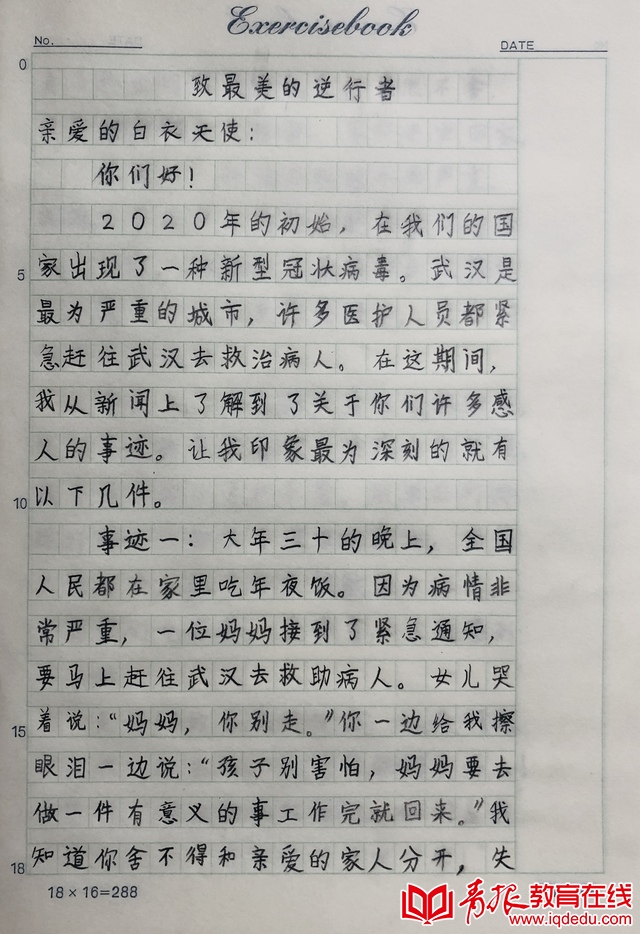 Exercisebook
No.
DATE
0
致最美的逆行者
亲爱的白衣天使：
你们好！
2020年的初始，在我们的国
5 家出现了一种新型冠状病毒。武汉是
最为严重的城市，许多医护人员都紧
急赶往武汉去救治病人。在这期间，
我从新闻上了解到了关于你们许多感
人的事迹。让我印象最为深刻的就有
10 以下几件。
事迹一：大年三十的晚上，全国
人民都在家里吃年夜饭。因为病情非
常严重，一位妈妈接到了紧急通知，
要马上赶往武汉去救助病人。女儿哭
15 着说：“妈妈，你别走。”你一边给我擦
眼泪一边说：“孩子别害怕，妈妈要去
做一件有意义的事工作完就回来。”我
18 知道你舍不得和亲爱的家人分开，失
18×16=288
青报教育在线
www.iqdedu.com